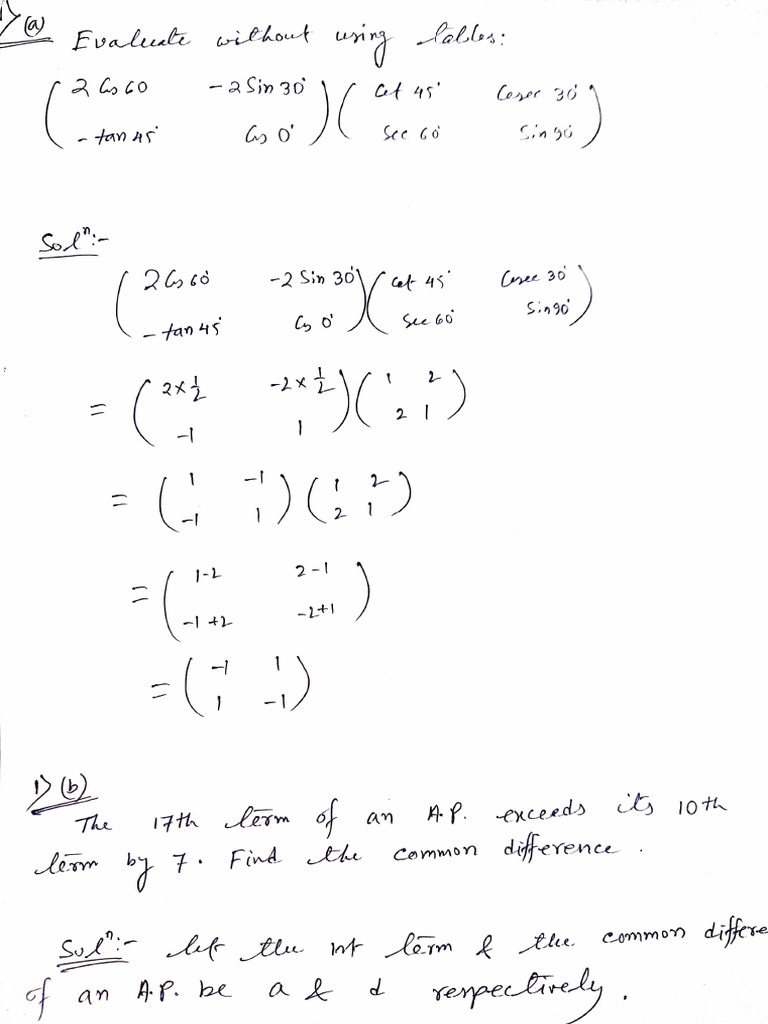 1) (a) Evaluate without using tables:
( 2 Cos 60 -2 Sin 30° ) ( Cot 45° Cosec 30° )
( - tan 45° Cos 0° ) ( Sec 60° Sin 90° )
Solⁿ:-
( 2 Cos 60° -2 Sin 30° ) ( Cot 45° Cosec 30° )
( - tan 45° Cos 0° ) ( Sec 60° Sin 90° )
= ( 2 × 1/2 -2 × 1/2 ) ( 1 2 )
( -1 1 ) ( 2 1 )
= ( 1 -1 ) ( 1 2 )
( -1 1 ) ( 2 1 )
= ( 1-2 2-1 )
( -1+2 -2+1 )
= ( -1 1 )
( 1 -1 )
1) (b)
The 17th term of an A.P. exceeds its 10th
term by 7. Find the common difference.
Solⁿ:- let the 1st term & the common differe
of an A.P. be a & d respectively.